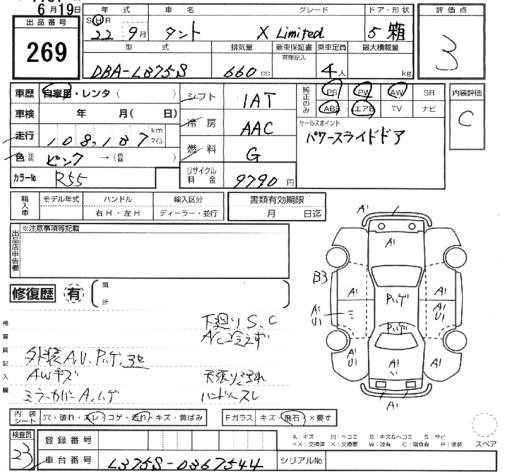 6月19日
出品番号
269
年式 車名 グレード ドア・形状
SHR
22年9月 タント X Limited 5 箱
型式 排気量 新車保証書 乗車定員 最大積載量
有限記入
DBA-L375S 660cc 4人 kg
評価点
3
車歴 自家用・レンタ( )
車検 年 月( 日)
走行 108,187 km マイル
色 ピンク →(色替)
カラーNo R55
シフト 1AT
冷房 AAC
燃料 G
リサイクル料金 9790円
純正のみ PS PW AW SR
ABS エアB TV ナビ
セールスポイント
パワースライドドア
内装評価
C
輸入車 モデル年式 ハンドル 輸入区分
右H・左H ディーラー・並行
書類有効期限
月 日迄
出品店申告欄
※注意事項等記載
修復歴 有 箇所
検査員記入欄
下廻りS、C
A/C冷えず
外装A,U,Pハゲ,ヨゴレ
AWキズ 天張りヨゴレ
ミラーカバーA,ハゲ ハンドルスレ
A1
A1
B3 A1 A1
Pハゲ
A1 U1 A1 U1
Pハゲ
A1 A1
A1
A1
内装シート 穴・破れ・スレ・コゲ・汚れ・キズ・黄ばみ
Fガラス キズ・飛石・×要す
A:キズ U:ヘコミ B:キズ&ヘコミ S:サビ
××:交換済 ×:交換要 W:波有 C:腐食有 P:塗装
スペア
検査員
23
登録番号
車台番号 L375S-0367544 シリアルNo.